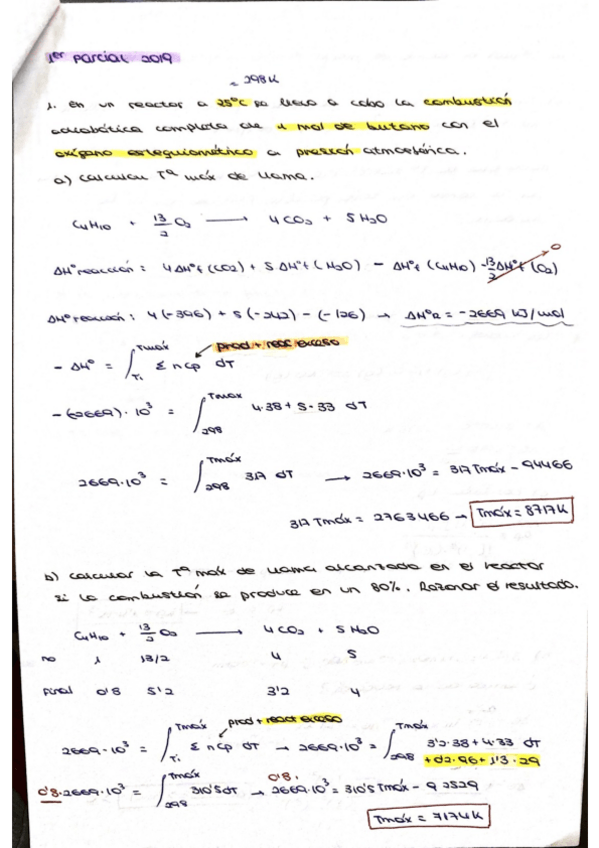 1er Parcial 2019
= 298K
1. En un reactor a 25°C se lleva a cabo la combustión
adiabática completa de 1 mol de butano con el
oxígeno estequiométrico a presión atmosférica.
a) Calcular Tª máx de llama.
C4H10 + 13/2 O2 → 4CO2 + 5H2O
ΔH° reacción: 4ΔH°f (CO2) + 5ΔH°f (H2O) - ΔH°f (C4H10) - 13/2 ΔH°f (O2) 0
ΔH° reacción: 4(-396) + 5(-242) - (-126) → ΔH°R = -2669 kJ/mol
prod + reac exceso
- ΔH° = ∫Ti Tmáx Σ n cp dT
-(-2669)·10³ = ∫298 Tmáx 4·38 + 5·33 dT
2669·10³ = ∫298 Tmáx 317 dT → 2669·10³ = 317 Tmáx - 94466
317 Tmáx = 2763466 → Tmáx = 8717K
b) Calcular la Tª máx de llama alcanzada en el reactor
si la combustión se produce en un 80%. Razonar el resultado.
C4H10 + 13/2 O2 → 4CO2 + 5H2O
no 1 13/2 4 5
Final 0'8 5'2 3'2 4
prod + react exceso
2669·10³ = ∫Ti Tmáx Σ n cp dT → 2669·10³ = ∫298 Tmáx 3'2·38 + 4·33 dT
+0'2·96 + 1'3·29
0'8·2669·10³ = ∫298 Tmáx 310'5 dT → 0'8·2669·10³ = 310'5 Tmáx - 92529
Tmáx = 7174K